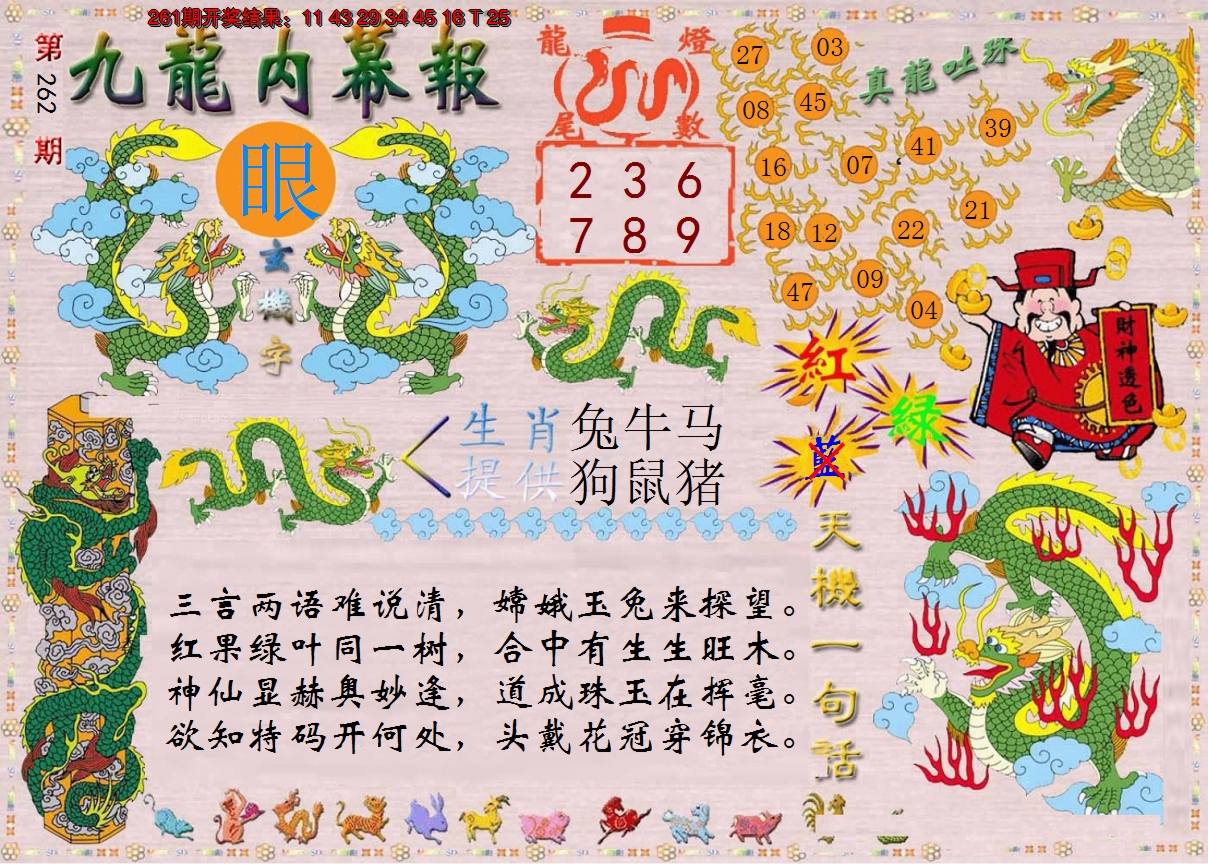 261期开奖结果：11 43 29 34 45 16 T 25
第262期
九龍内幕報
眼
玄機字
龍燈
尾數
2 3 6
7 8 9
真龍吐珠
27 03
08 45
16 07 41 39
18 12 22 21
47 09 04
財神透色
紅
綠
藍
生肖 兔牛马
提供 狗鼠猪
天機一句話
三言两语难说清，嫦娥玉兔来探望。
红果绿叶同一树，合中有生生旺木。
神仙显赫奥妙逢，道成珠玉在挥毫。
欲知特码开何处，头戴花冠穿锦衣。